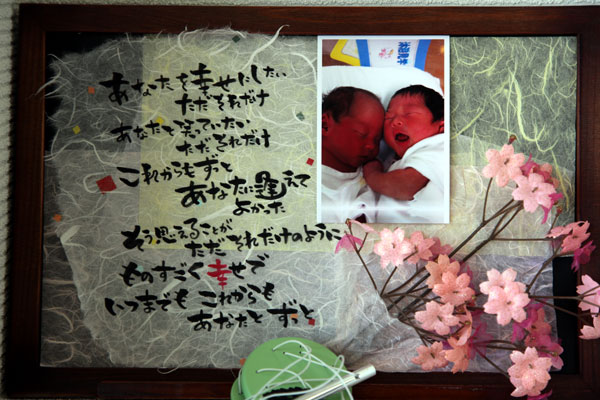 あなたを幸せにしたい
ただそれだけ
あなたと笑っていたい
ただそれだけ
これからもずっと
あなたに逢えて
よかった
そう思えることが
ただそれだけのように
ものすごく幸せで
いつまでもこれからも
あなたとずっと